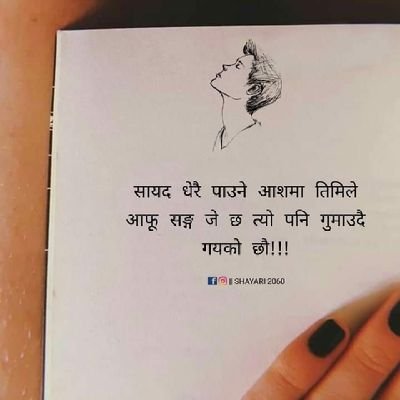 सायद धेरै पाउने आशमा तिमिले
आफू सङ्ग जे छ त्यो पनि गुमाउदै
गयको छौ!!!
|| SHAYARI 2060